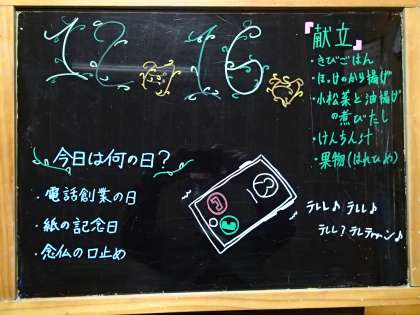 12.16.
『献立』
・きびごはん
・ほっけのかり揚げ
・小松菜と油揚げ
の煮びたし
・けんちん汁
・果物(はれひめ)
今日は何の日?
・電話創業の日
・紙の記念日
・念仏の口止め
テレレ♪テレレ♪